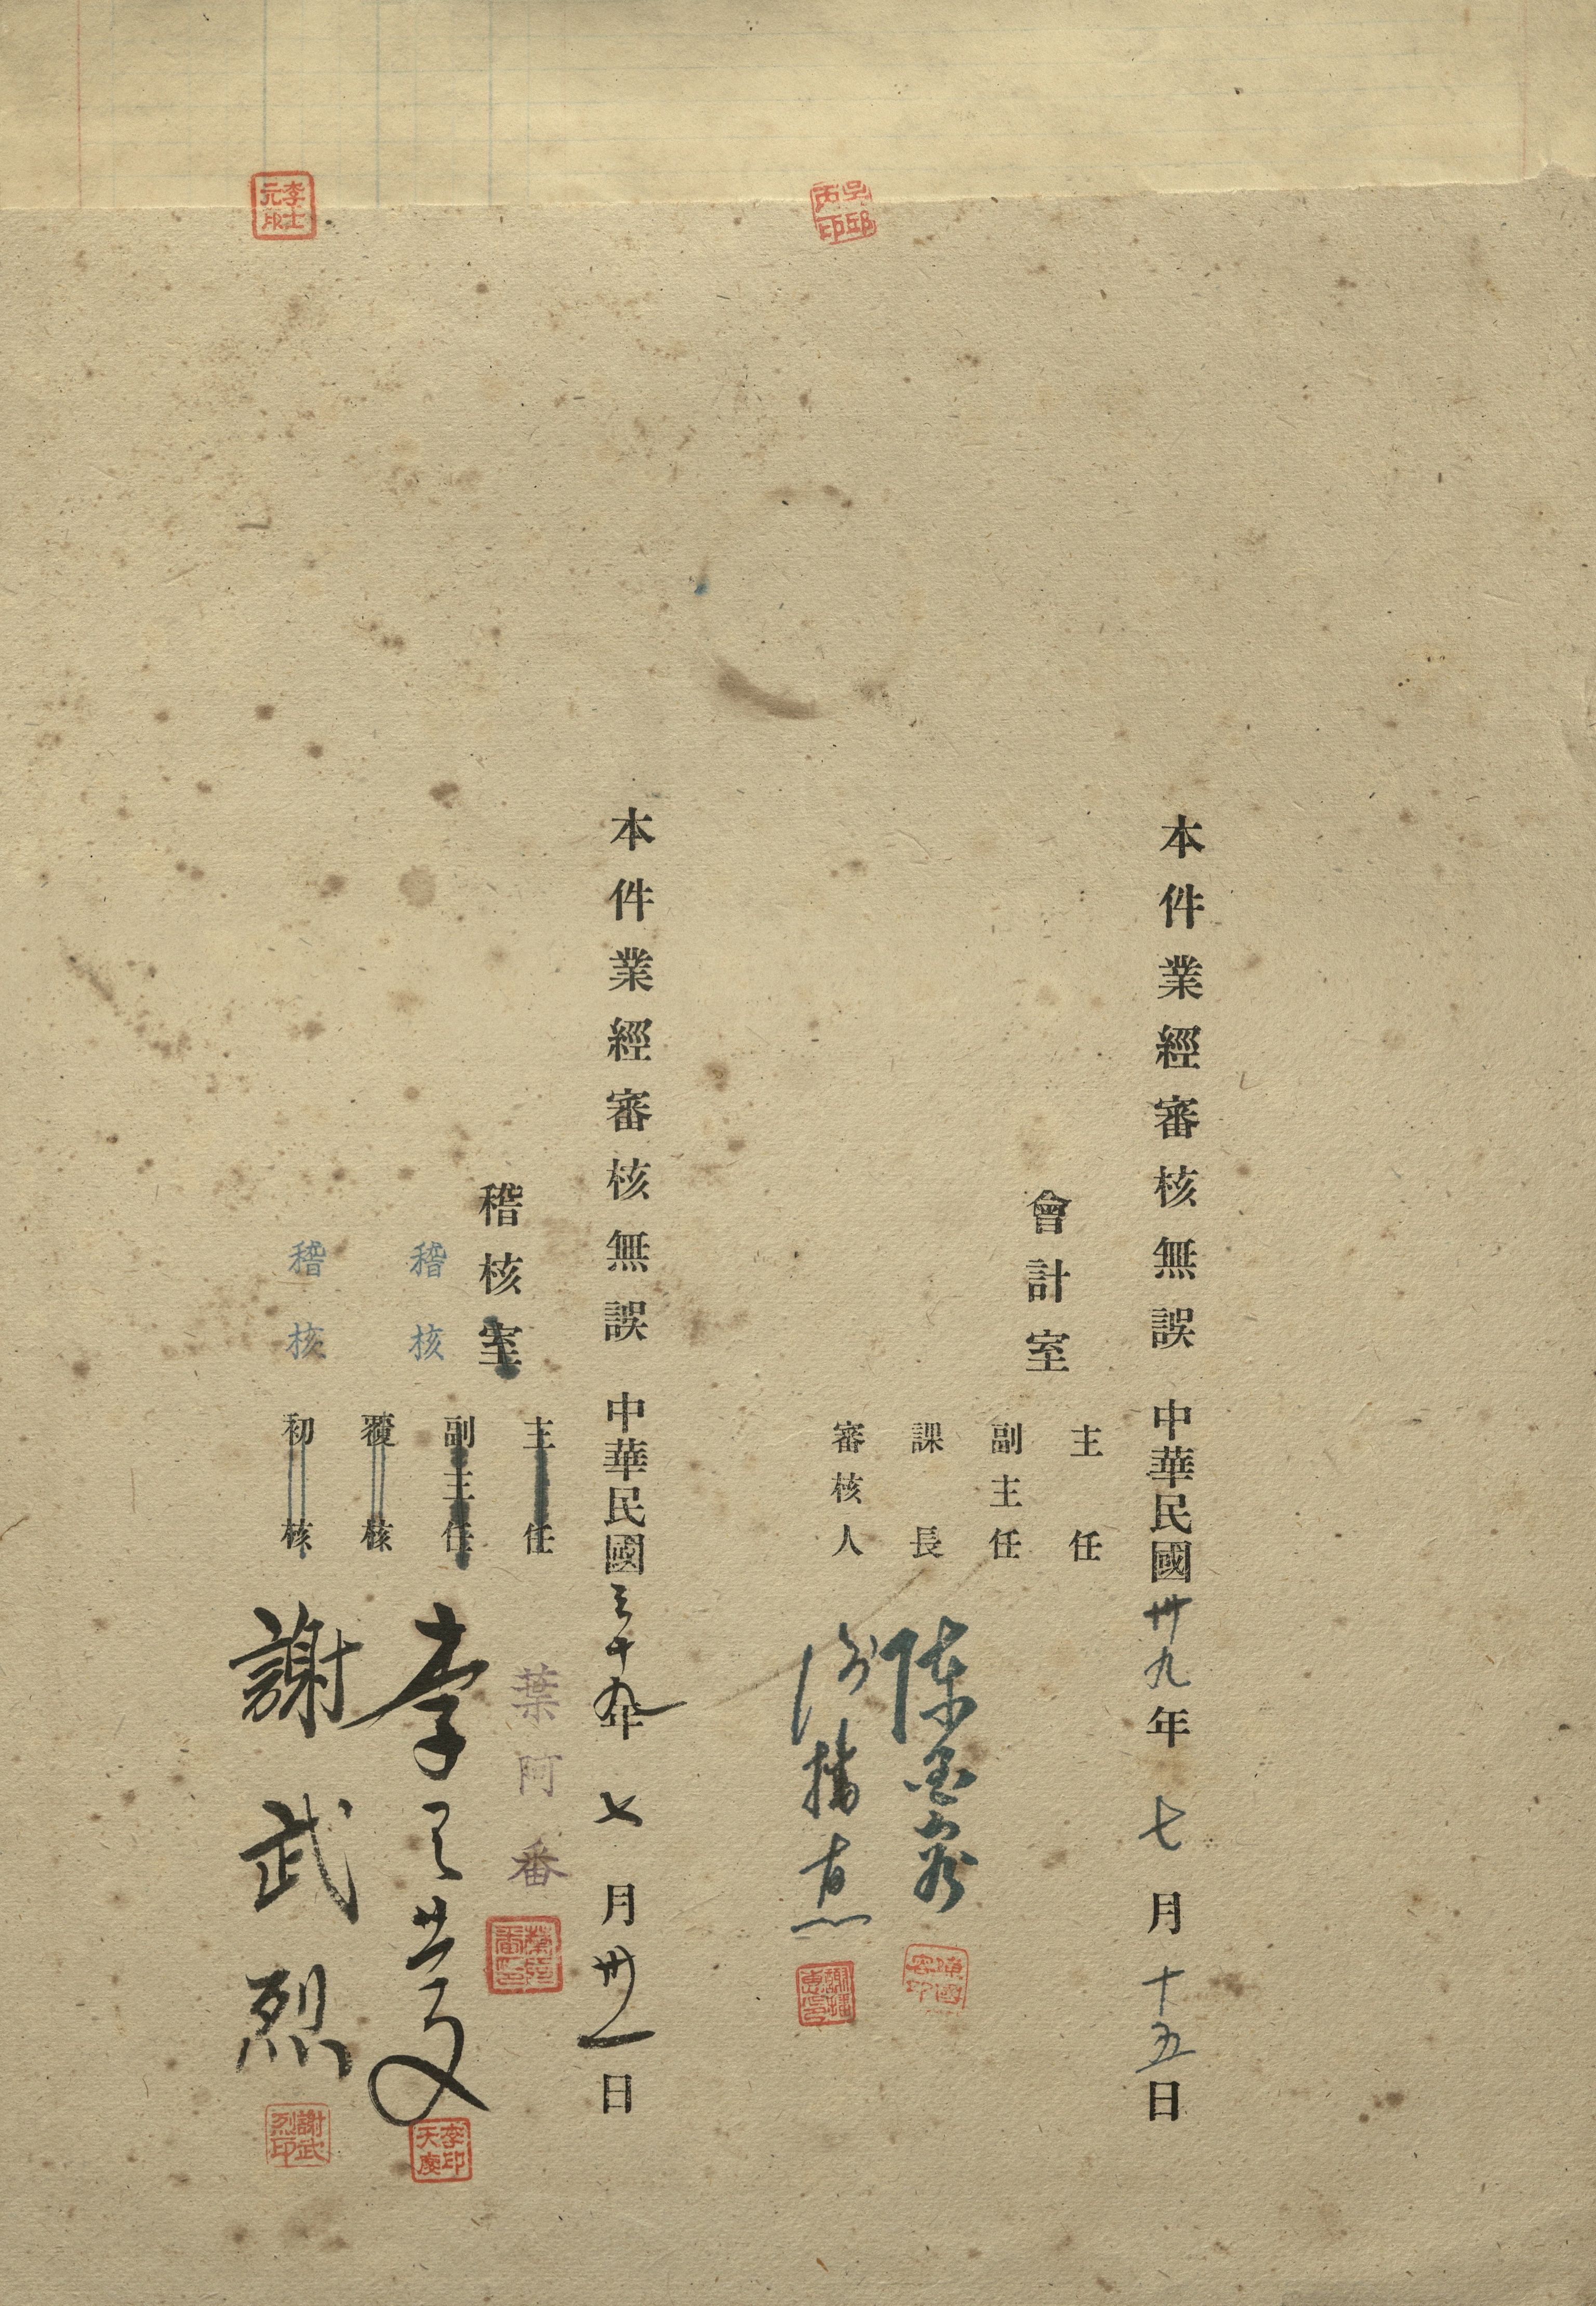 李士元印
吳邱丙印
本件業經審核無誤 中華民國卅九年七月十五日
會計室
主任
副主任
課長
審核人
陳國容
謝播惠
陳國容印
謝播惠印
本件業經審核無誤 中華民國三十九年七月卅一日
稽核室
主任
副主任
稽核
覆核
稽核
初核
葉阿番
李天慶
李印天慶
謝武烈
謝武烈印